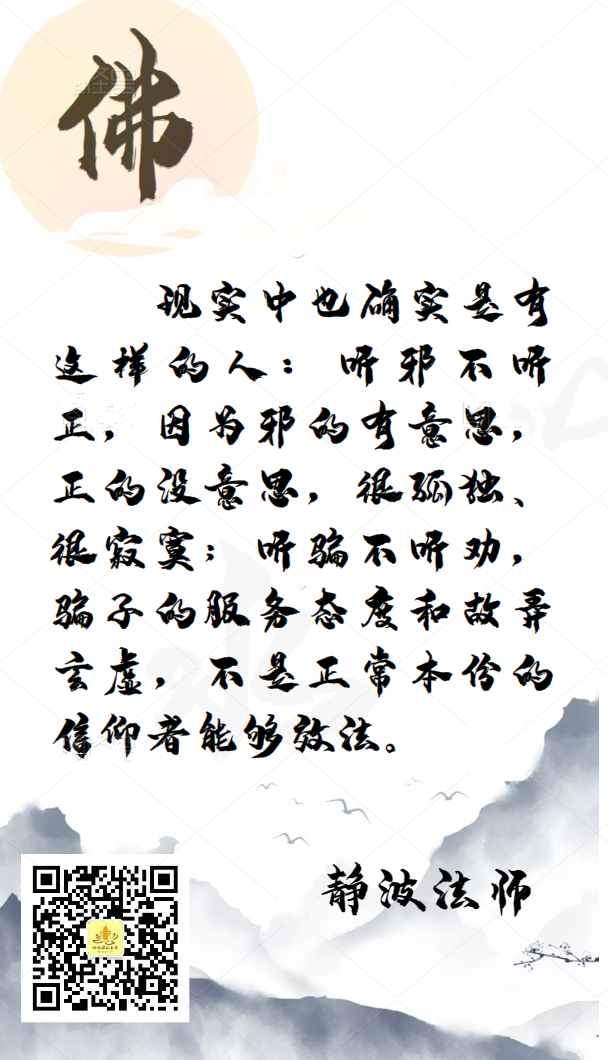 佛
现实中也确实是有
这样的人：听邪不听
正，因为邪的有意思，
正的没意思，很孤独、
很寂寞；听骗不听劝，
骗子的服务态度和故弄
玄虚，不是正常本份的
信仰者能够效法。
静波法师